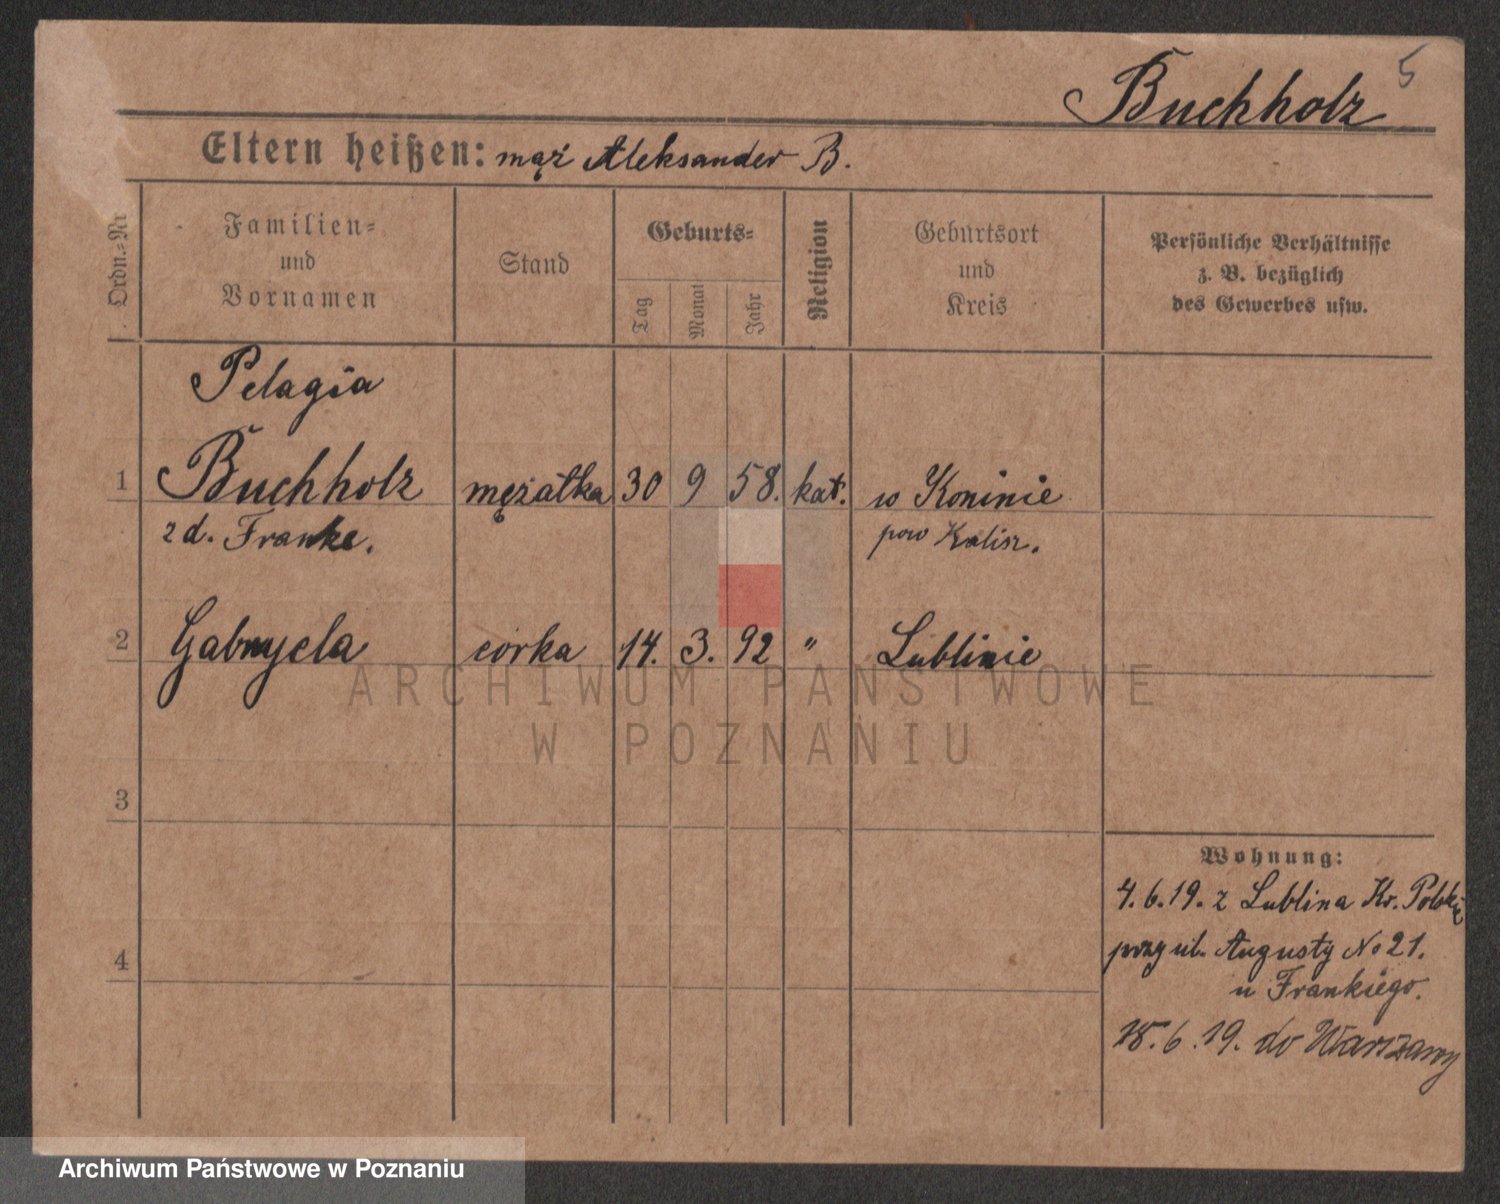 5
Buchholz
Eltern heißen: mąż Aleksander B.
Ordn.=Nr
Familien=
und
Vornamen
Stand
Geburts=
Tag
Monat
Jahr
Religion
Geburtsort
und
Kreis
Persönliche Verhältnisse
z. B. bezüglich
des Gewerbes usw.
Pelagia
1 Buchholz mężatka 30 9 58. kat. w Koninie
z d. Franke. pow Kalisz.
2 Gabryela corka 14. 3. 92 " Lublinie
ARCHIWUM PAŃSTWOWE
W POZNANIU
3
Wohnung:
4.6.19. z Lublina Kr. Polskie
przy ul. Augusty No 21.
4
u Frankiego.
18.6.19. do Warszawy
Archiwum Państwowe w Poznaniu